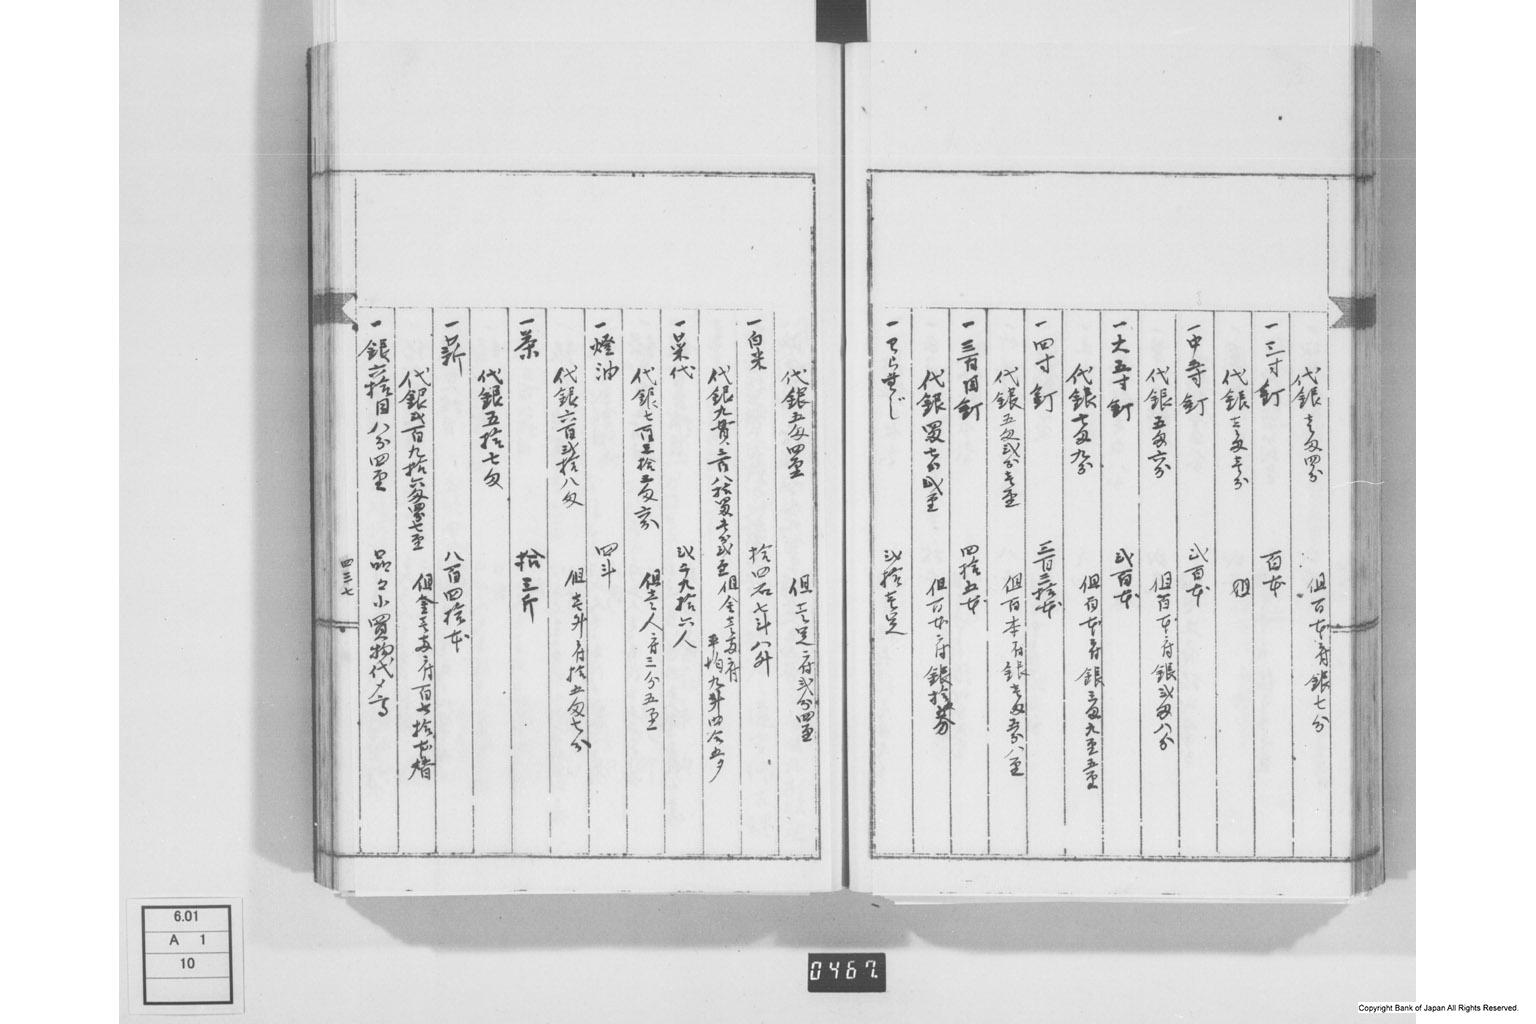 代銀壱匁四分 但百本ニ付銀七分
一 三寸釘 百本
代銀壱匁壱分 但
一 中五寸釘 弐百本
代銀五匁六分 但百本ニ付銀弐匁八分
一 大五寸釘 弐百本
代銀七匁九分 但百本ニ付銀三匁九分五厘
一 四寸釘 三百三拾本
代銀五匁弐分壱厘 但百本ニ付銀壱匁五分八厘
一 三百目釘 四拾五本
代銀四匁七分弐厘 但百本ニ付銀拾匁
一 わらんじ 弐拾壱足
代銀五匁四厘 但壱足ニ付弐分四厘
一 白米 拾四石七斗八升
代銀九貫三百八拾四匁壱分弐厘 但金壱両ニ付平均九斗四合五夕
一 菜代 弐千九拾六人
代銀七百三拾三匁六分 但壱人ニ付三分五厘
一 燈油 四斗
代銀六百弐拾八匁 但壱升ニ付拾五匁七分
一 茶 拾三斤
代銀五拾七匁
一 薪 八百四拾本
代銀弐百九拾六匁四分七厘 但金壱両ニ付百七拾
一 銀六拾目八分四厘 品々小買物代〆高
四三七
6.01
A 1
10
0467
Copyright Bank of Japan All Rights Reserved.